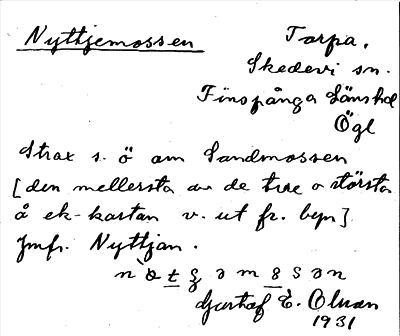 Nyttjemossen
Torpa.
Skedevi sn.
Finspånga Länshd
Ögl
Strax s. ö om Sandmossen
[den mellersta av de tre o största
å ek-kartan v. ut fr. byn]
Jmfr. Nyttjan.
Gustaf E. Olsson
1931